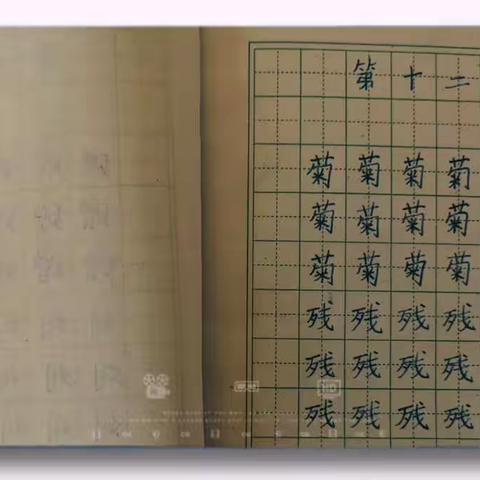 第十二
菊菊菊菊
菊菊菊菊
菊菊菊菊
残残残残
残残残残
残残残残
HD